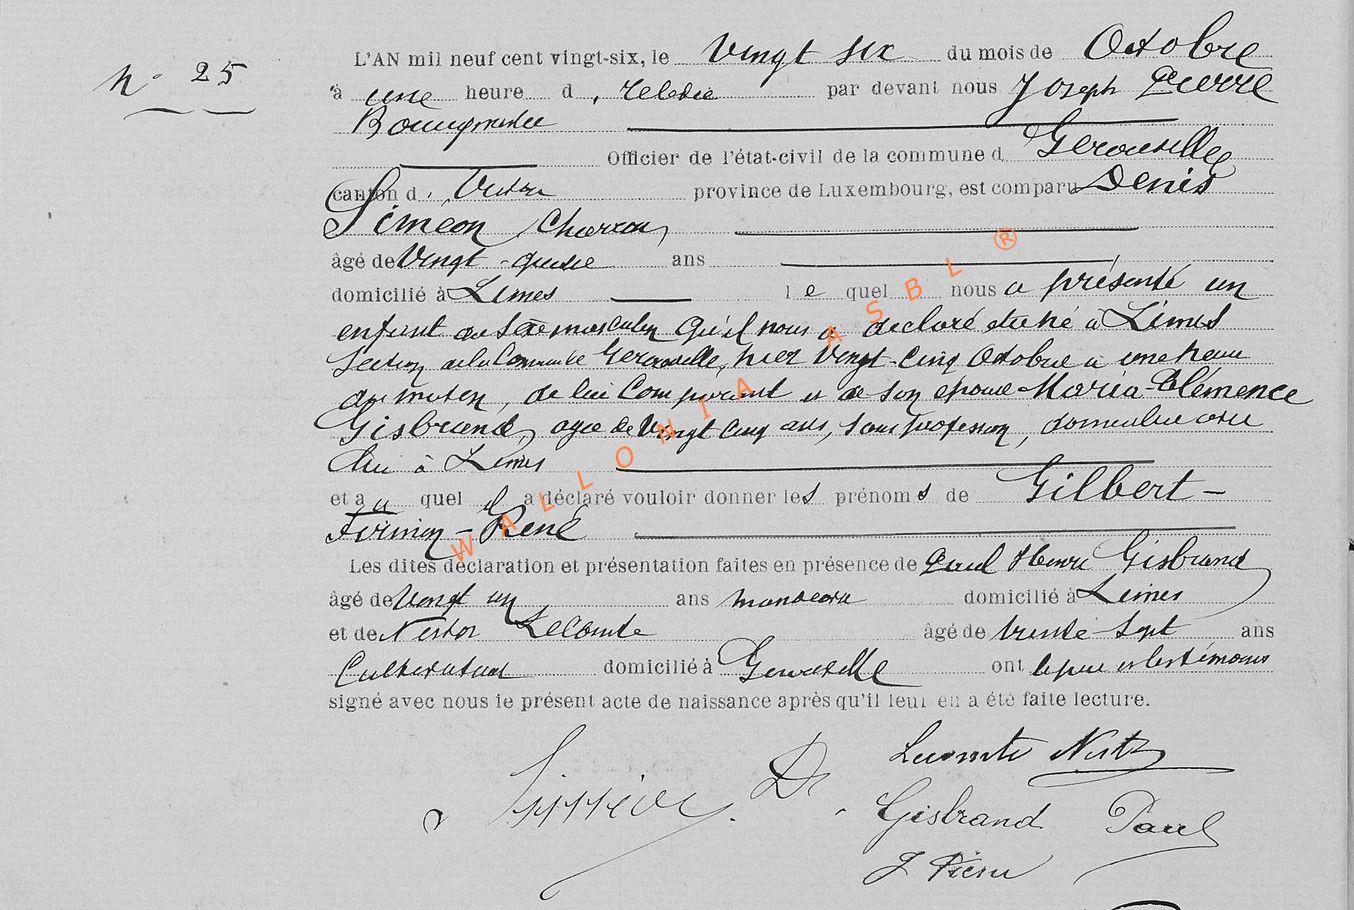 N° 25
L'AN mil neuf cent vingt-six, le Vingt six du mois de Octobre
à une heure d, relevée par devant nous Joseph Pierre
Bourgmestre
Officier de l'état-civil de la commune d Gerouville
canton d, Virton province de Luxembourg, est comparu Denis
Siméon Charron,
âgé de Vingt-quatre ans
domicilié à Limes le quel nous a présenté un
enfant du sexe masculin qu'il nous a declaré etre né à Limes
Section de la Commune de Gerouville, hier Vingt-Cinq Octobre a une heure
du matin, de lui Comparant et de son epouse Maria Clémence
Gisbrand, agée de Vingt cinq ans, sans profession, domiciliée avec
lui à Limes
et au quel il a déclaré vouloir donner les prénoms de Gilbert-
Firmin-René
Les dites déclaration et présentation faites en présence de Paul Henri Gisbrand
âgé de Vingt un ans domicilié à Limes
et de Nestor Lecomte âgé de trente-sept ans
Cultivateur domicilié à Gerouville ont le père et les témoins
signé avec nous le présent acte de naissance après qu'il leur en a été faite lecture.
Lecomte Nestor
Siméon D
Gisbrand Paul
J Pierre
WALLONIA ASBL ®